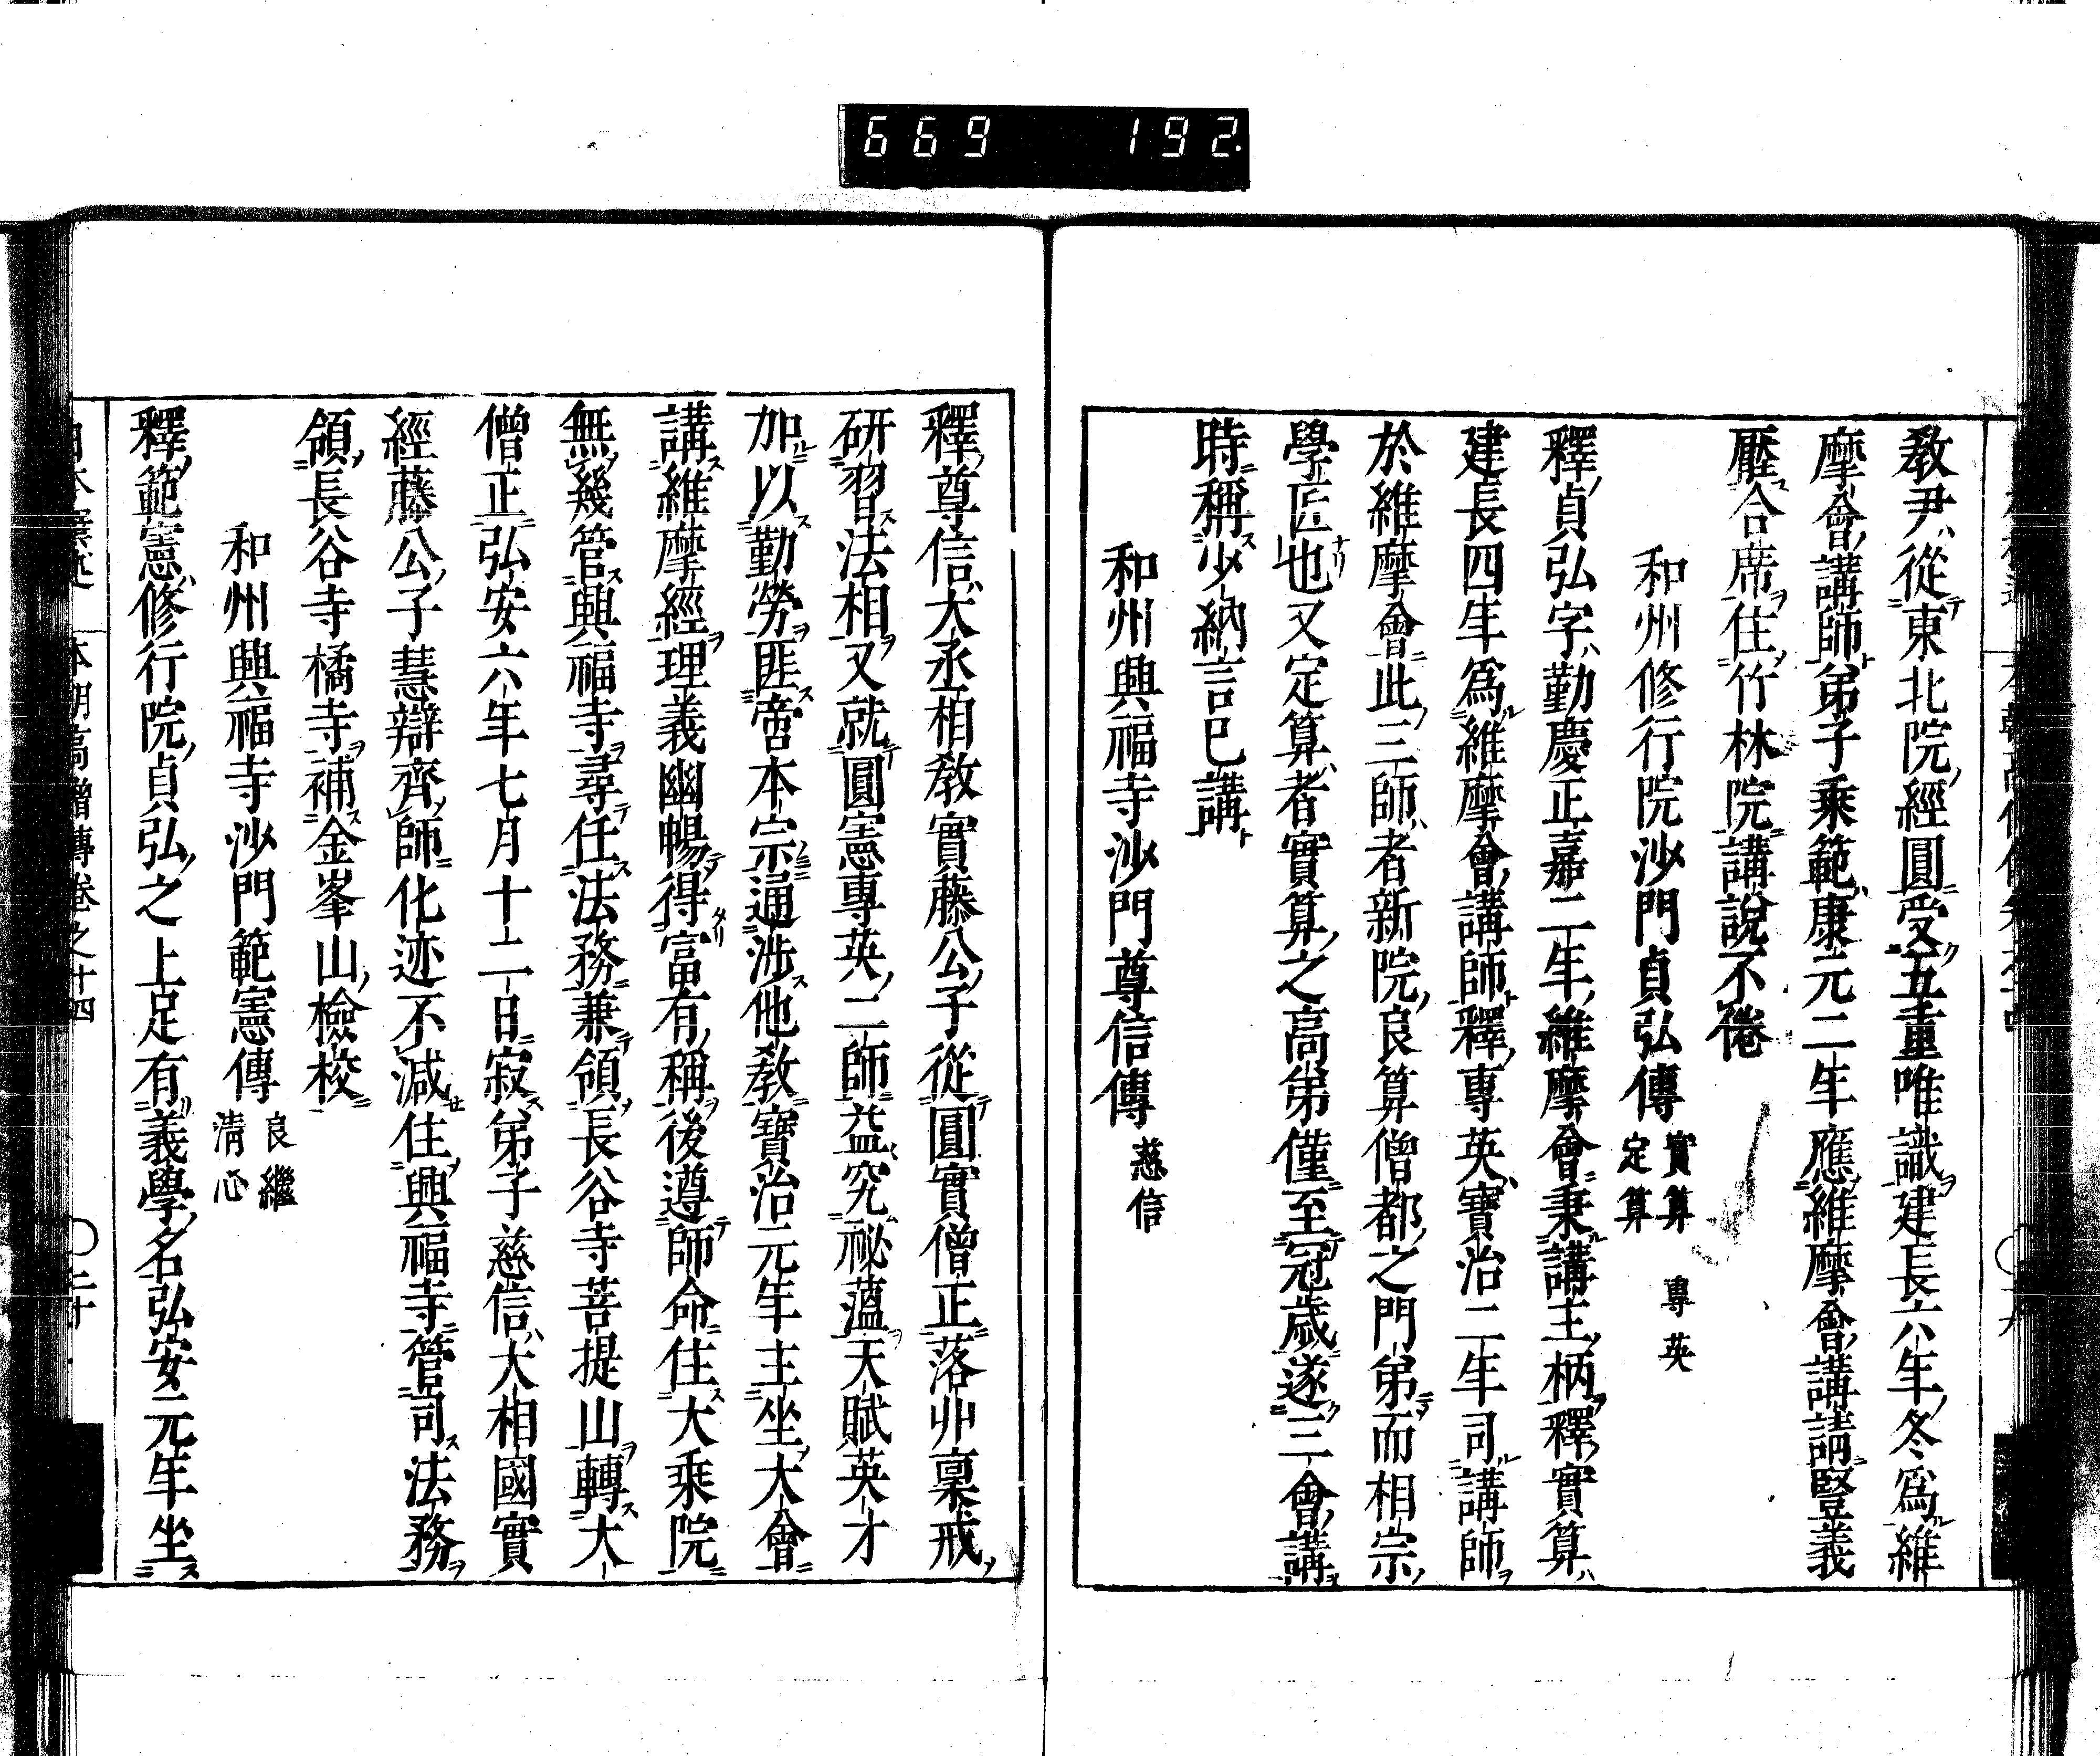 669 192.
教尹從東北院經圓受五重唯識建長六年冬爲維
摩會講師弟子乘範康元二年應維摩會講請豎義
壓合席住竹林院講說不倦
和州修行院沙門貞弘傳 實算 專英 定算
釋貞弘字勤慶正嘉二年維摩會秉講主柄釋實算
建長四年爲維摩會講師釋專英寶治二年司講師
於維摩會此三師者新院良算僧都之門弟而相宗
學匠也又定算者實算之高弟僅至冠歲遂三會講
時稱少納言已講
和州興福寺沙門尊信傳 慈信
釋尊信大丞相教實藤公子從圓實僧正落丱稟戒
研習法相又就圓憲專英二師益究祕蘊天賦英才
加以勤勞匪啻本宗通涉他教寶治元年主坐大會
講維摩經理義幽暢得富有稱後遵師命住大乘院
無幾管興福寺尋任法務兼領長谷寺菩提山轉大
僧正弘安六年七月十二日寂弟子慈信大相國實
經藤公子慧辯齊師化迹不減住興福寺管司法務
領長谷寺橘寺補金峯山檢校
和州興福寺沙門範憲傳 良繼 清心
釋範憲修行院貞弘之上足有義學名弘安元年坐
本朝高僧傳卷之十四 〇二十